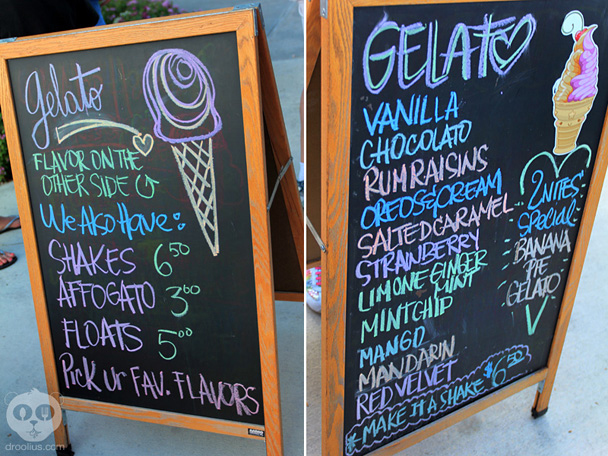 gelato
FLAVOR ON THE
OTHER SIDE
We Also Have:
SHAKES 6.50
AFFOGATO 3.00
FLOATS 5.00
Pick Ur FAV. FLAVORS
droolius.com
GELATO
VANILLA
CHOCOLATO
RUM RAISINS
OREOS&CREAM
SALTED CARAMEL
STRAWBERRY
LIMONE GINGER
MINT
MINT CHIP
MANGO
MANDARIN
RED VELVET
*MAKE IT A SHAKE $6.50
2NITES
SPECIAL
BANANA
PIE
GELATO